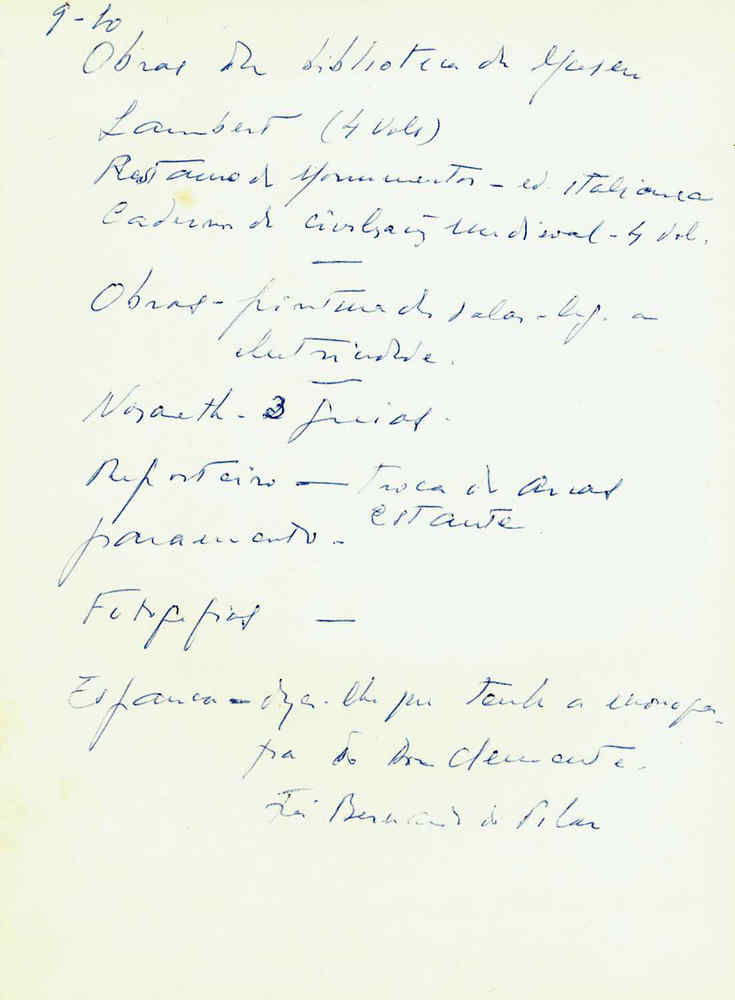 9-10
Obras da biblioteca do Museu
Lambert (4 vols)
Restauro de Monumentos - ed. italiana
Cadernos de civilização medieval - 4 vol.
Obras - pintura das salas - lig. a
electricidade.
Nazareth - 3 guias.
Reposteiro — troca de arcas
estante
paramento -
Fotografias —
Espanca - dizer-lhe que tenho a monogra-
fia do Dom Clemente.
Frei Bernardo do Pilar